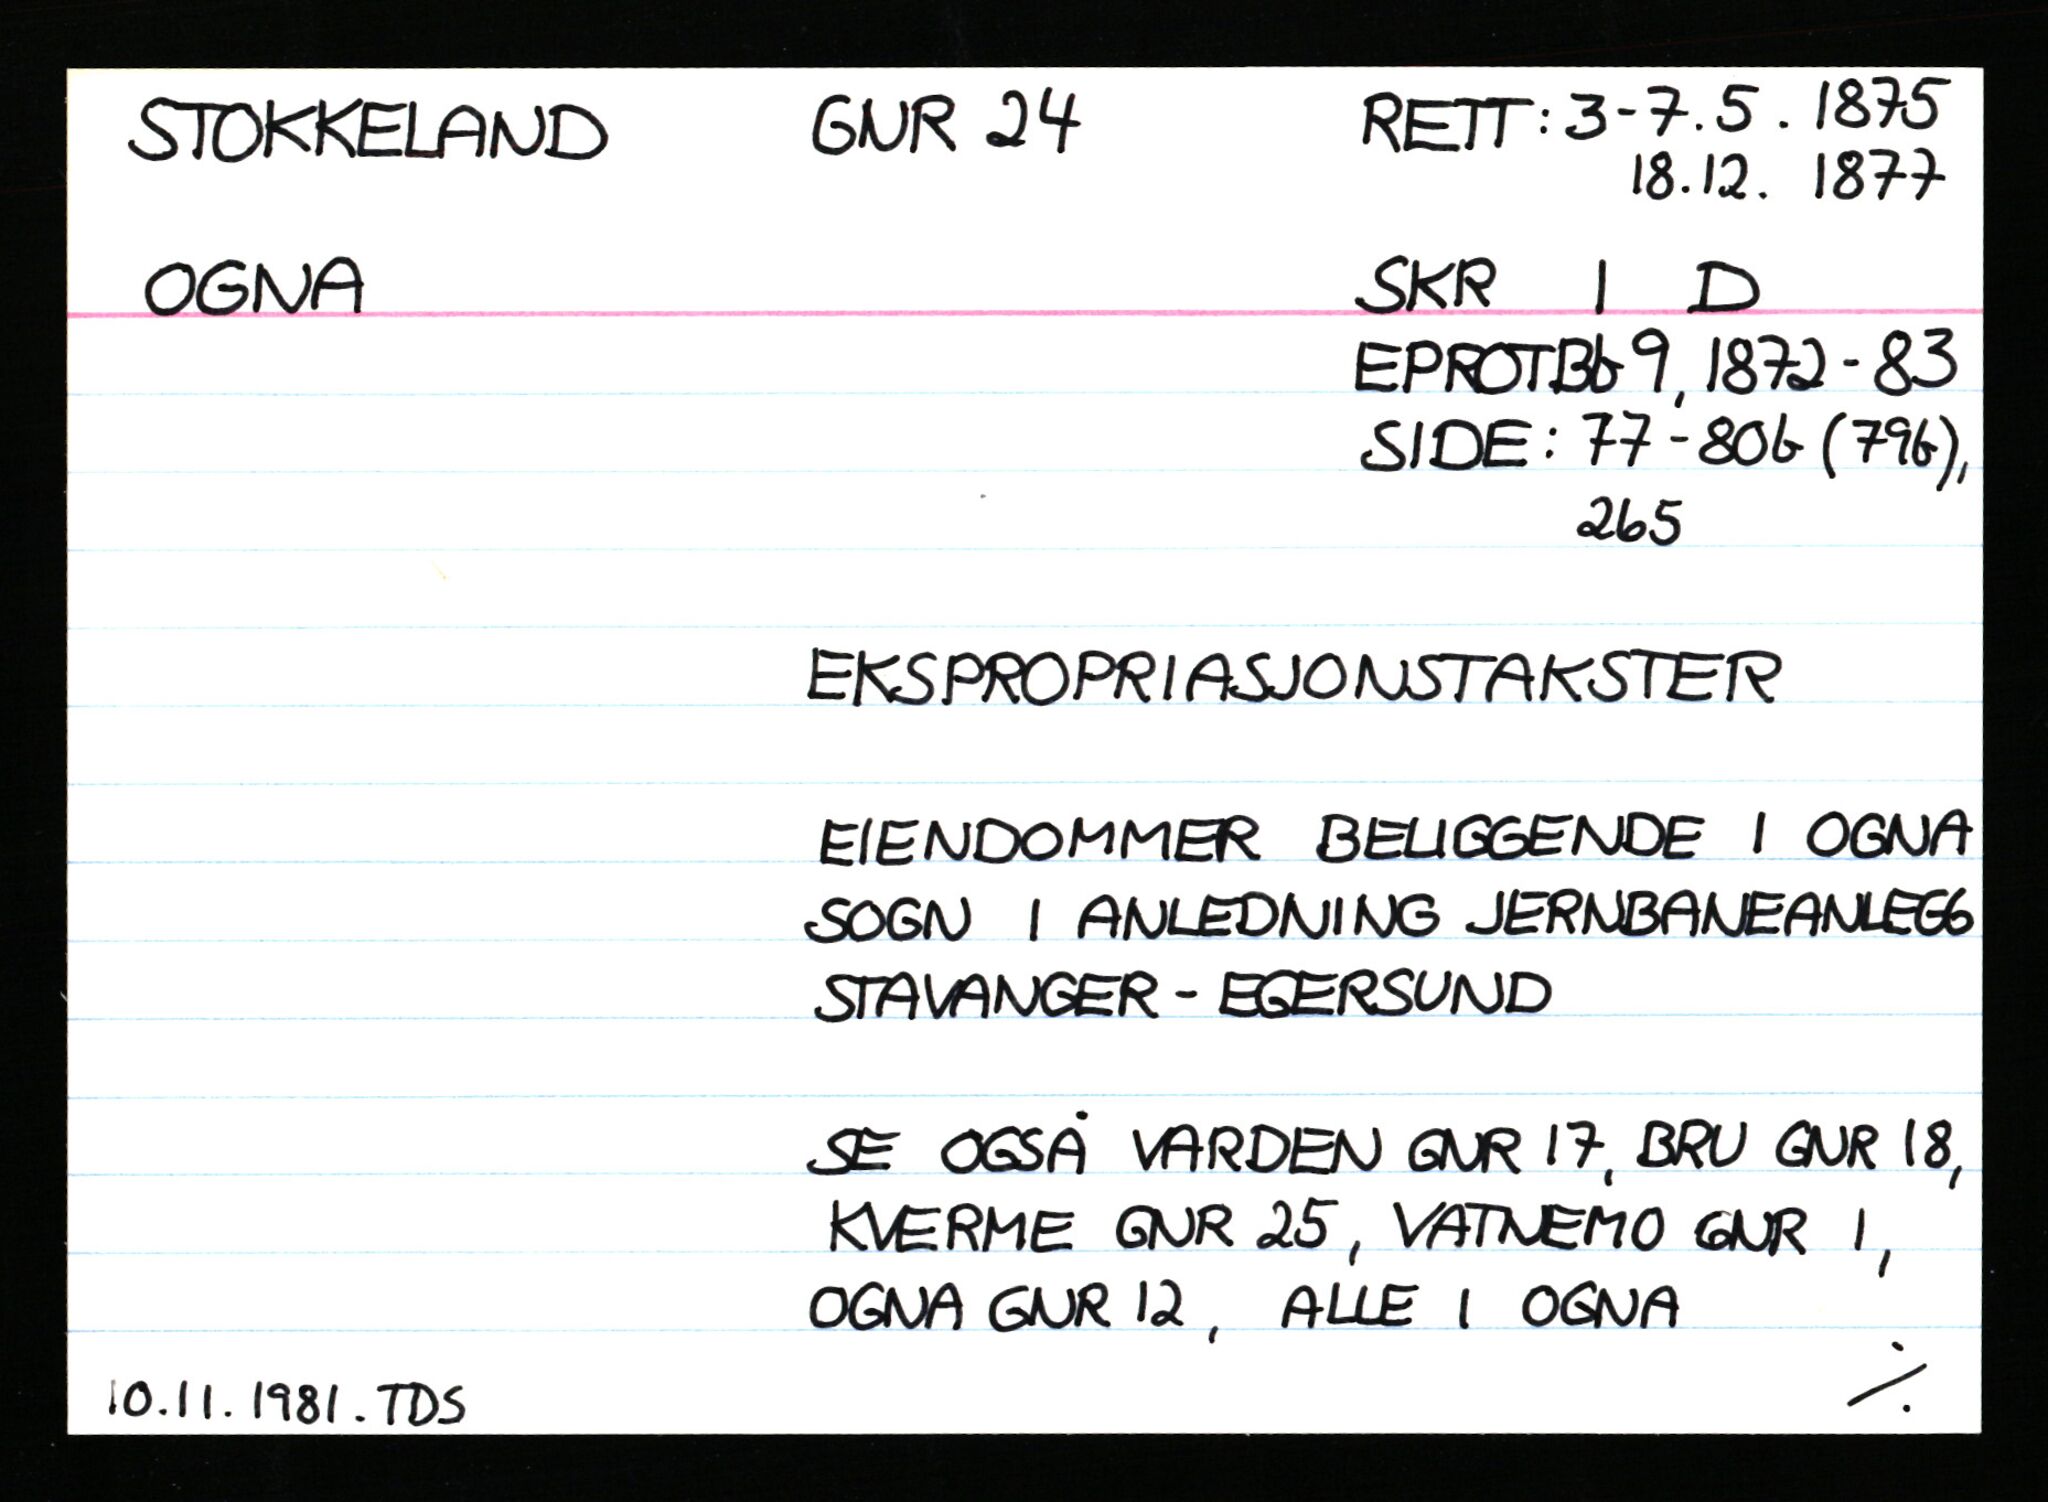 STOKKELAND GNR 24 RETT: 3-7.5. 1875
18.12. 1877
OGNA SKR I D
EPROTBb 9, 1872-83
SIDE: 77-80b (79b),
265
EKSPROPRIASJONSTAKSTER
EIENDOMMER BELIGGENDE I OGNA
SOGN I ANLEDNING JERNBANEANLEGG
STAVANGER - EGERSUND
SE OGSÅ VARDEN GNR 17, BRU GNR 18,
KVERME GNR 25, VATNEMO GNR 1,
OGNA GNR 12, ALLE I OGNA
10.11.1981. TDS ./.